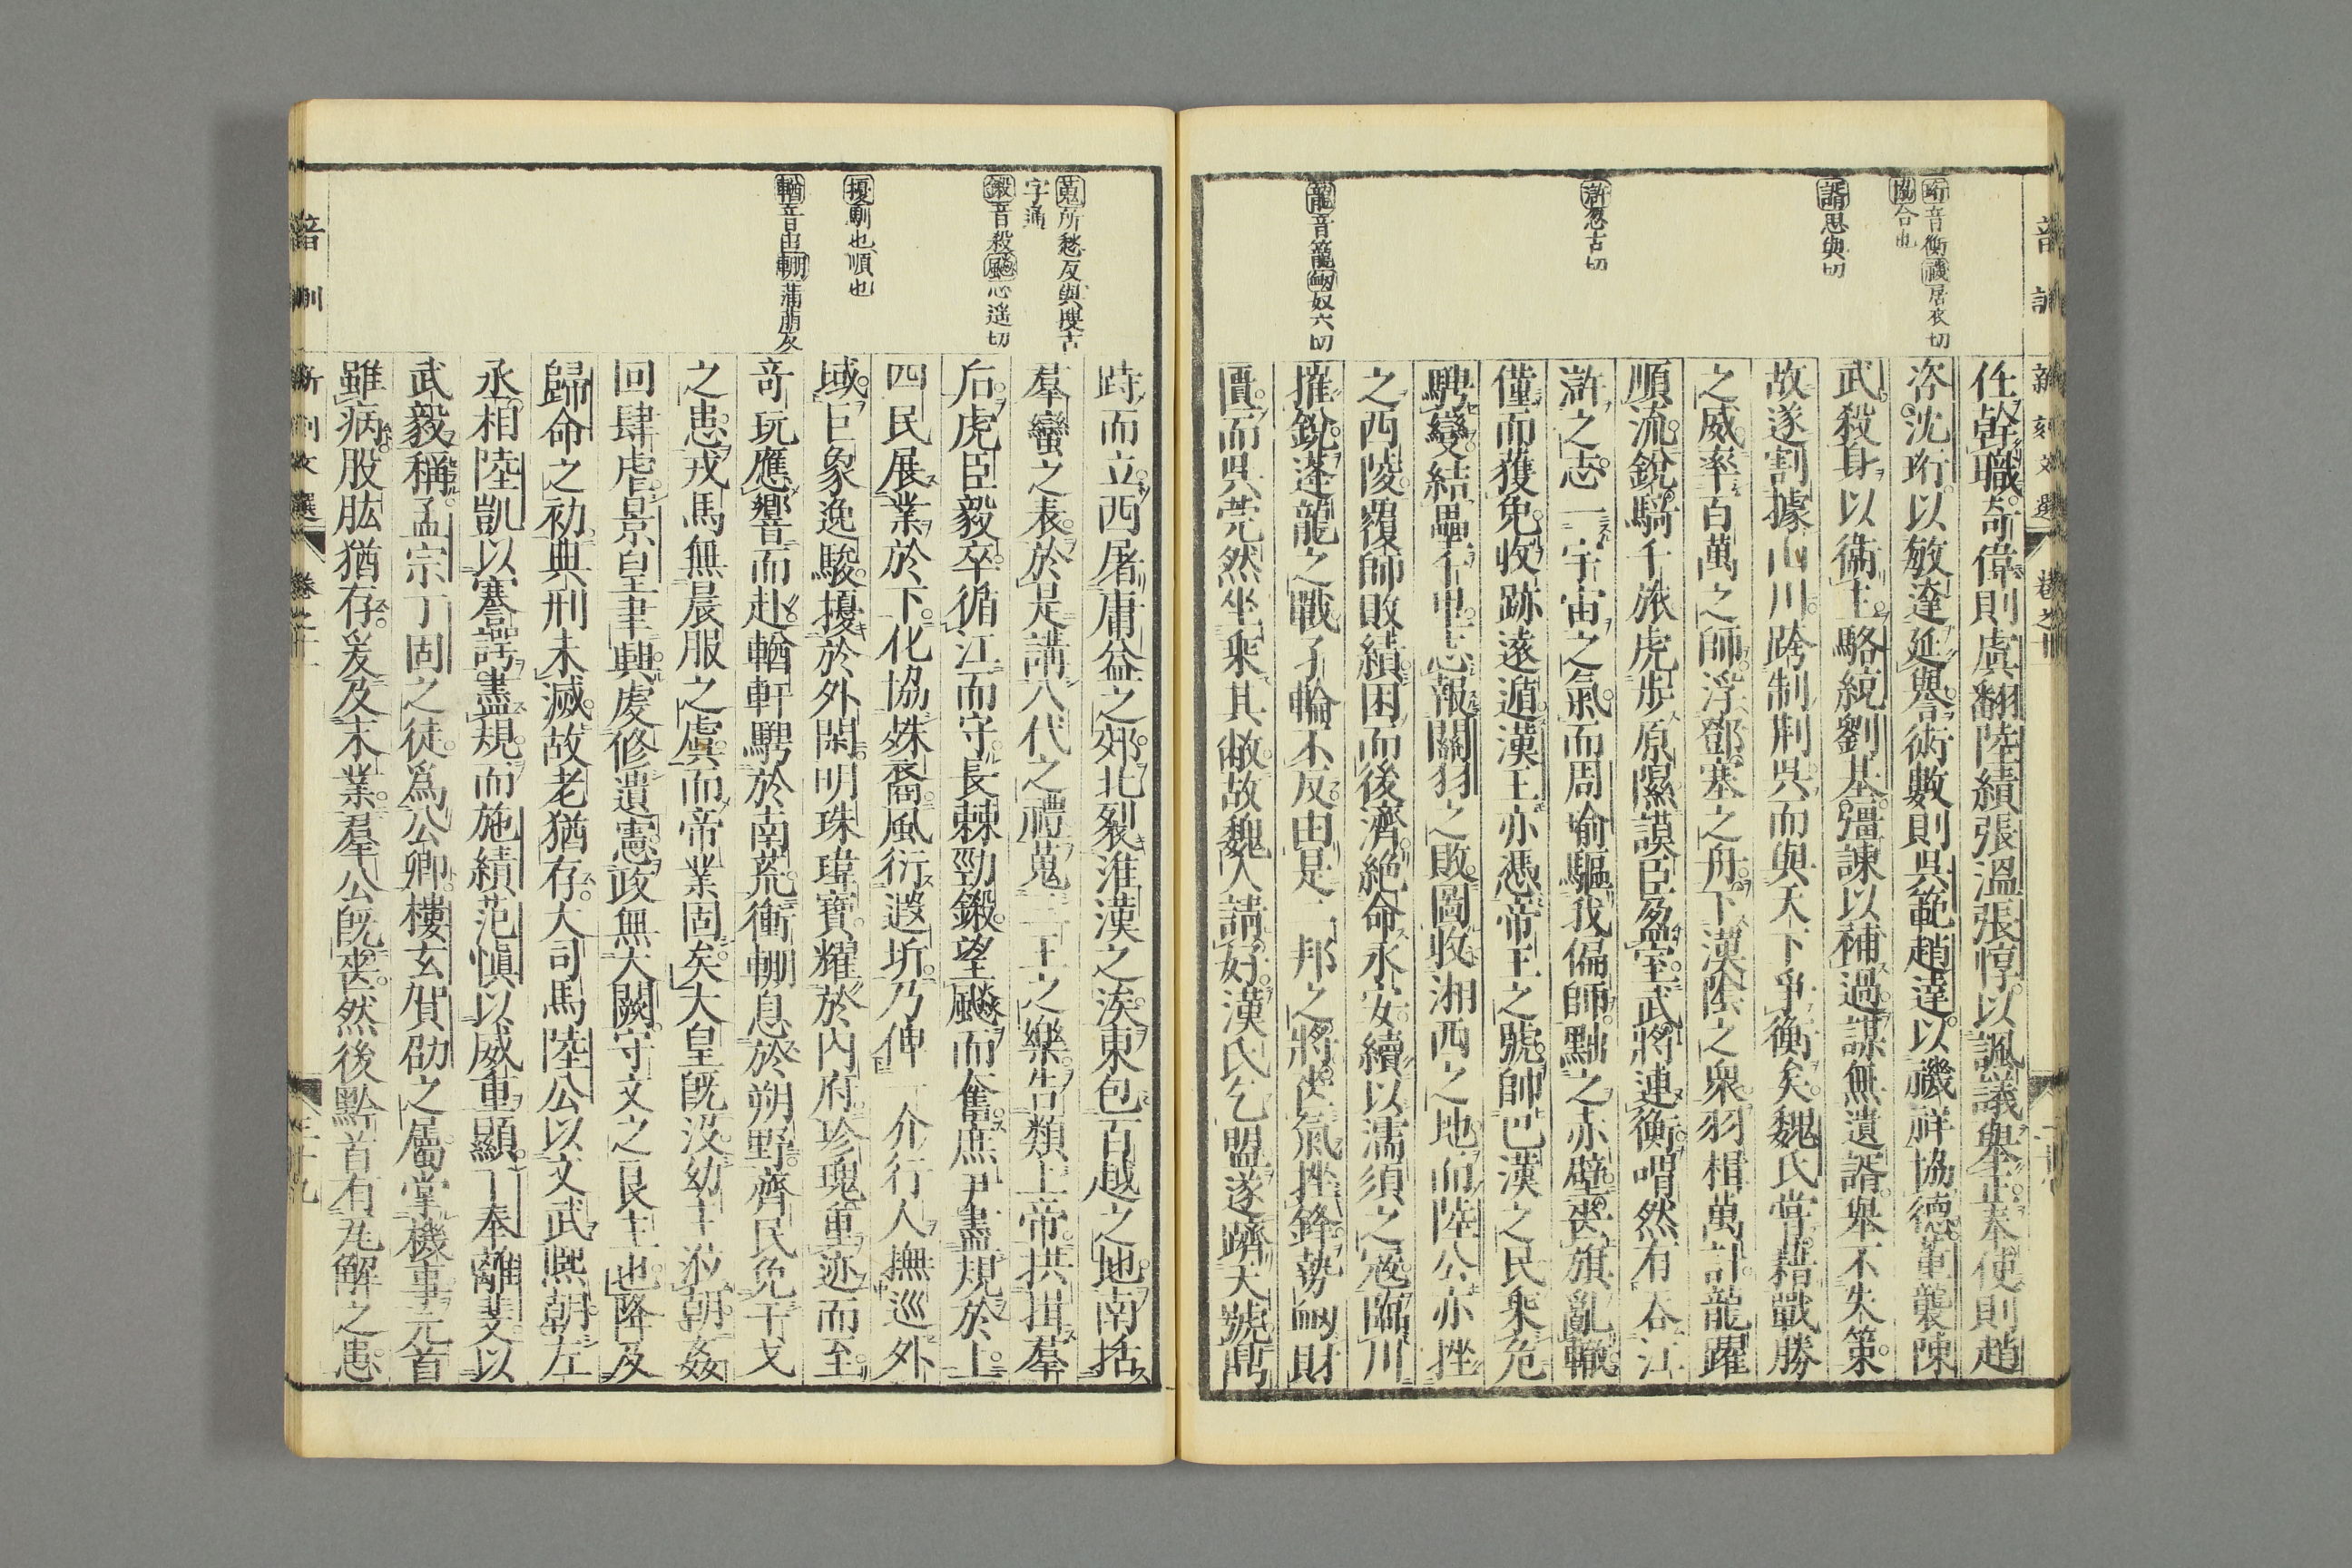 音訓
新刻文選
卷之
珩音衡禨居衣切
協合也
諝思與切
滸忽古切
龍音籠衂奴六切
任幹職奇偉則虞翻陸績張溫張惇以諷議舉正奉使則趙
咨沈珩以敏達延譽術數則吳範趙達以禨祥協德董襲陳
武殺身以衛主駱統劉基彊諫以補過謀無遺諝舉不失策
故遂割據山川跨制荊吳而與天下爭衡矣魏氏嘗藉戰勝
之威率百萬之師浮鄧塞之舟下漢陰之衆羽楫萬計龍躍
順流銳騎千旅虎步原隰謨臣盈室武將連衡喟然有吞江
滸之志一宇宙之氣而周瑜驅我偏師黜之赤壁喪旗亂轍
僅而獲免收跡遠遁漢王亦憑帝王之號帥巴漢之民乘危
騁變結壘千里志報關羽之敗圖收湘西之地而陸公亦挫
之西陵覆師敗績困而後濟絕命永安續以濡須之寇臨川
摧銳蓬龍之戰孑輪不反由是二邦之將喪氣挫鋒勢衂財
匱而吳莞然坐乘其敝故魏人請好漢氏乞盟遂躋天號鼎
蒐所愁反與叟古
字通
鎩音殺飈必遙切
擾馴也順也
輶音由輣蒲萠反
跱而立西屠庸益之郊北裂淮漢之涘東包百越之地南括
羣蠻之表於是講八代之禮蒐三王之樂告類上帝拱揖羣
后虎臣毅卒循江而守長棘勁鎩望飈而奮庶尹盡規於上
四民展業於下化協殊裔風衍遐圻乃俾一介行人撫巡外
域巨象逸駿擾於外閑明珠瑋寶耀於內府珍瑰重迹而至
奇玩應響而赴輶軒騁於南荒衝輣息於朔野齊民免干戈
之患戎馬無晨服之虞而帝業固矣大皇旣沒幼主莅朝姦
回肆虐景皇聿興虔修遺憲政無大闕守文之良主也降及
歸命之初典刑未滅故老猶存大司馬陸公以文武熙朝左
丞相陸凱以謇諤盡規而施績范愼以威重顯丁奉離斐以
武毅稱孟宗丁固之徒爲公卿樓玄賀劭之屬掌機事元首
雖病股肱猶存爰及末業羣公旣喪然後黔首有瓦解之患
音訓
新刻文選
卷之二十一
三十九